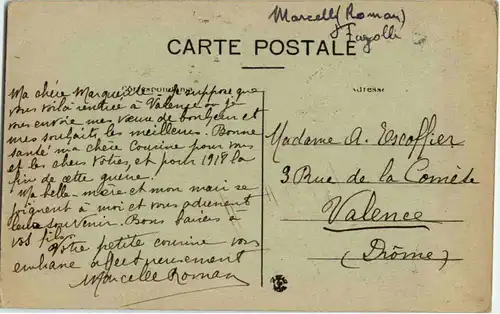 Marcelle (Roman)
CARTE POSTALE
Ma chère Marguerite je suppose que
vous voilà rentrée à Valence où je
vous envoie mes vœux de bonheur et
mes souhaits les meilleurs. Bonne
santé ma chère Cousine pour vous
et les chers vôtres, et pour 1918 la
fin de cette guerre.
Ma belle-mère et mon mari se
joignent à moi et vous adressent
leur souvenir. Bons baisers à
vos filles.
Votre petite cousine vous
embrasse affectueusement
Marcelle Roman
Adresse
Madame A. Escoffier
3 Rue de la Comète
Valence
(Drôme)